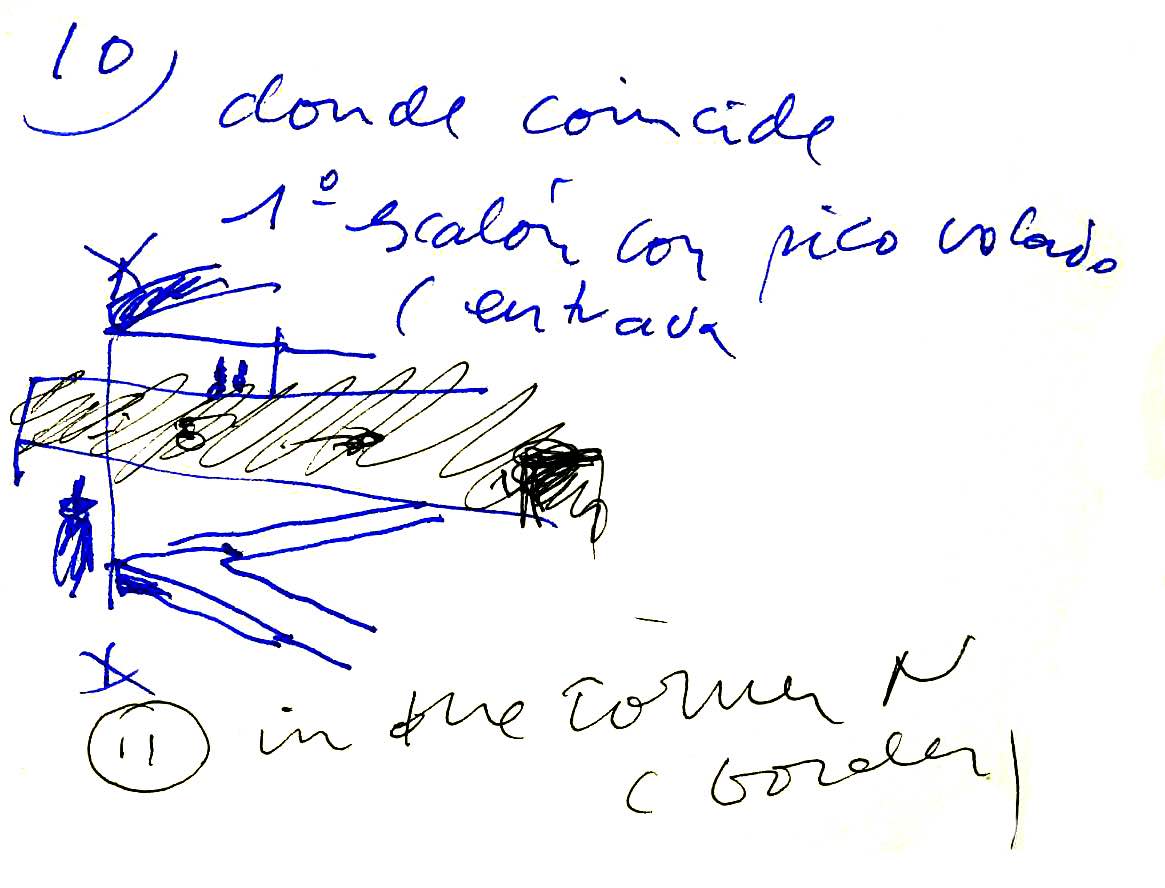 10)
donde coincide
1º escalón con pico volado
(entrada
11 in the corner N
(border)